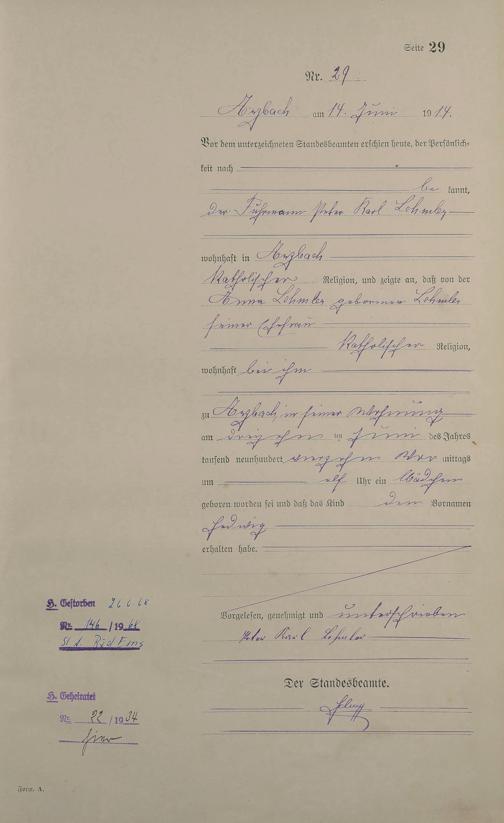 Seite 29
Nr. 29.
Arzbach am 14. Juni 1914.
Vor dem unterzeichneten Standesbeamten erschien heute, der Persönlich-
keit nach
be kannt,
der Fuhrmann Peter Karl Lehmler
wohnhaft in Arzbach
katholischer Religion, und zeigte an, daß von der
Anna Lehmler geborenen Lehmler
seiner Ehefrau
katholischer Religion,
wohnhaft bei ihm
zu Arzbach in seiner Wohnung
am dreizehn ten Juni des Jahres
tausend neunhundert vierzehn Vor mittags
um elf Uhr ein Mädchen
geboren worden sei und daß das Kind den Vornamen
Hedwig
erhalten habe.
Vorgelesen, genehmigt und unterschrieben
Peter Karl Lehmler
Der Standesbeamte.
H. Gestorben
Nr. 146 / 1968
St. A.
H. Geheiratet
Nr. 22 / 1934
hier
Form. A.